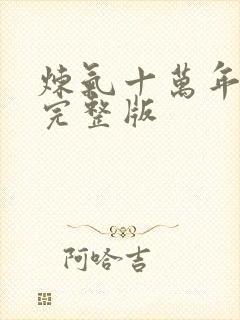 煉氣十萬年
完整版
阿哈吉